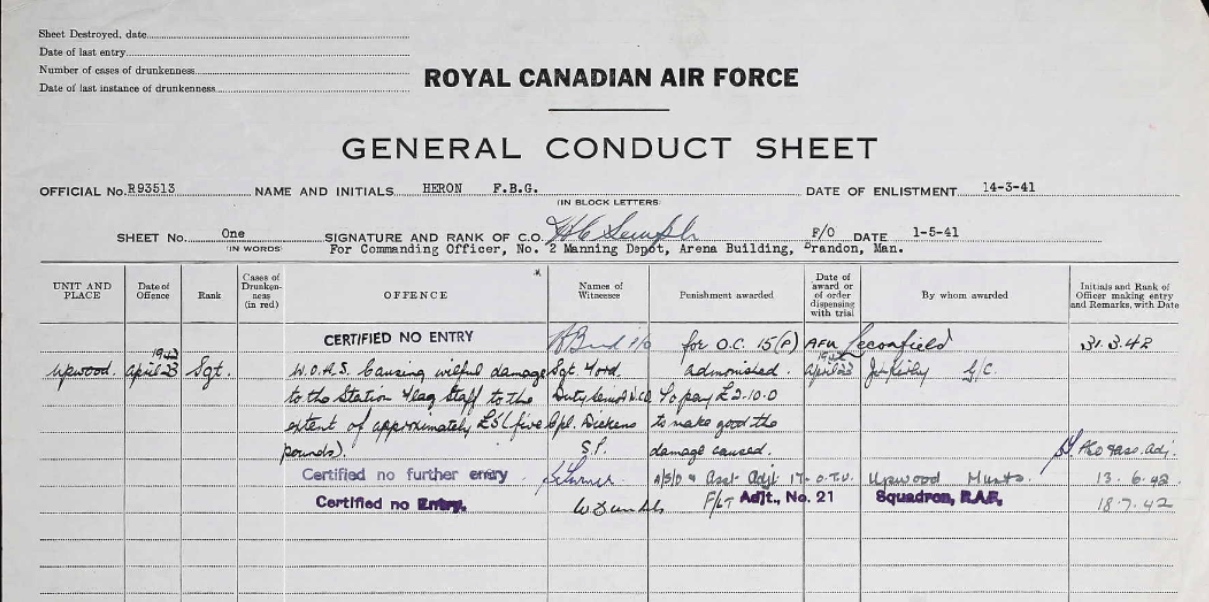 Sheet Destroyed, date
Date of last entry
Number of cases of drunkenness
Date of last instance of drunkenness
ROYAL CANADIAN AIR FORCE
GENERAL CONDUCT SHEET
OFFICIAL No. R93513 NAME AND INITIALS HERON F.B.G. DATE OF ENLISTMENT 14-3-41
(IN BLOCK LETTERS)
SHEET No. One SIGNATURE AND RANK OF C.O. F/O DATE 1-5-41
(IN WORDS) For Commanding Officer, No. 2 Manning Depot, Arena Building, Brandon, Man.
UNIT AND PLACE Date of Offence Rank Cases of Drunken-ness (in red) OFFENCE Names of Witnesses Punishment awarded Date of award or of order dispensing with trial By whom awarded Initials and Rank of Officer making entry and Remarks, with Date
CERTIFIED NO ENTRY for O.C. 15(P) AFU Leconfield 31.3.42
Upwood. April 23 Sgt. W.O.A.S. Causing wilful damage Sgt. Ford. admonished. April 23 G/C.
to the Station Flag Staff to the Duty To pay £2-10-0
extent of approximately £5 (five Cpl. Dickens to make good the
pounds). S.P. damage caused.
Certified no further entry Asst Adjt 17. O.T.U. Upwood Hunts. 13.6.42
Certified no Entry. F/LT Adjt., No. 21 Squadron, R.A.F. 18.7.42